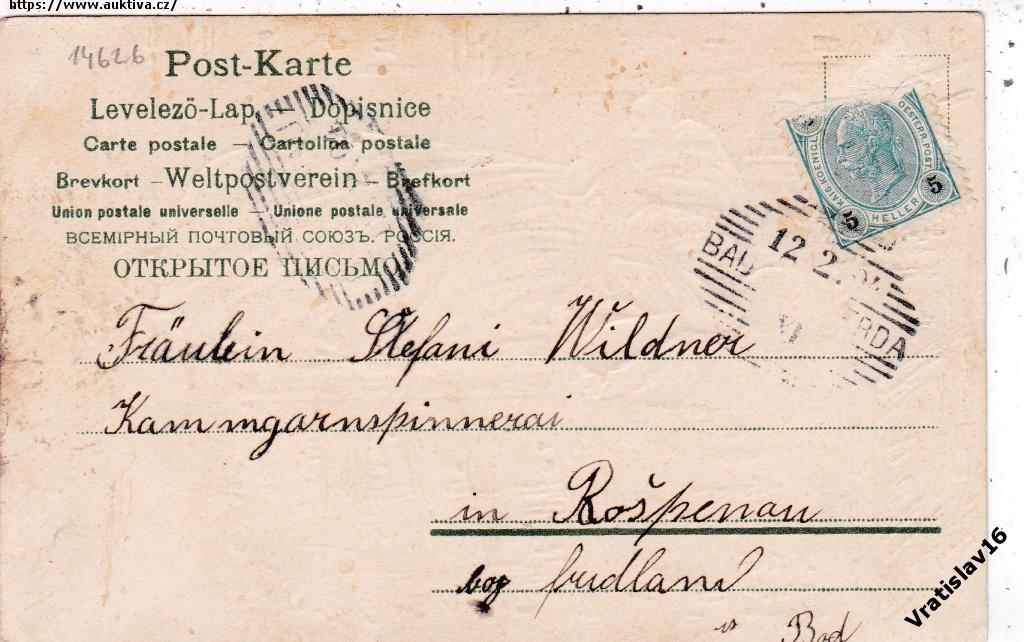 https://www.auktiva.cz/
14626
Post-Karte
Levelező-Lap — Dopisnice
Carte postale — Cartolina postale
Brevkort – Weltpostverein – Brefkort
Union postale universelle — Unione postale universale
ВСЕМІРНЫЙ ПОЧТОВЫЙ СОЮЗЪ. РОССІЯ.
ОТКРЫТОЕ ПИСЬМО
KAIS. KOENIGL. OESTERR. POST.
5 HELLER 5
BAD
12 2
ERDA
VI
Fräulein Stefani Wildner
Kammgarnspinnerai
in Rošpenau
fridland
Bad
Vratislav16